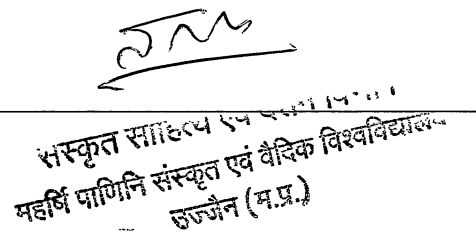 संस्कृत साहित्य एवं
महर्षि पाणिनि संस्कृत एवं वैदिक विश्वविद्यालय
उज्जैन (म.प्र.)